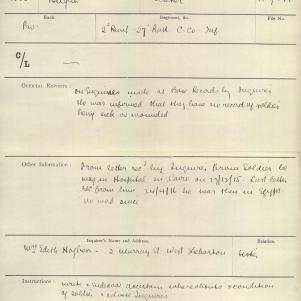 Rank.
Regiment, &c.
File No.
Pte.
27th Batt. C. Co. Inf.
C/L
OFFICIAL REPORTS :
on Enquiries made at Base Records by Enquirer
He was informed that they have no record of soldier
being sick or wounded
Other Information :
From letter rec'd by Enquirer from Soldier he
was in Hospital in Cairo on 27/12/15. Last letter
rec'd from him 24/4/16 he was then in Egypt
no word since
Inquirer's Name and Address.
Relation.
Mrs Edith - 2 Murray St. West
Instructions :
write Indiana
of soldier + advise Enquirer